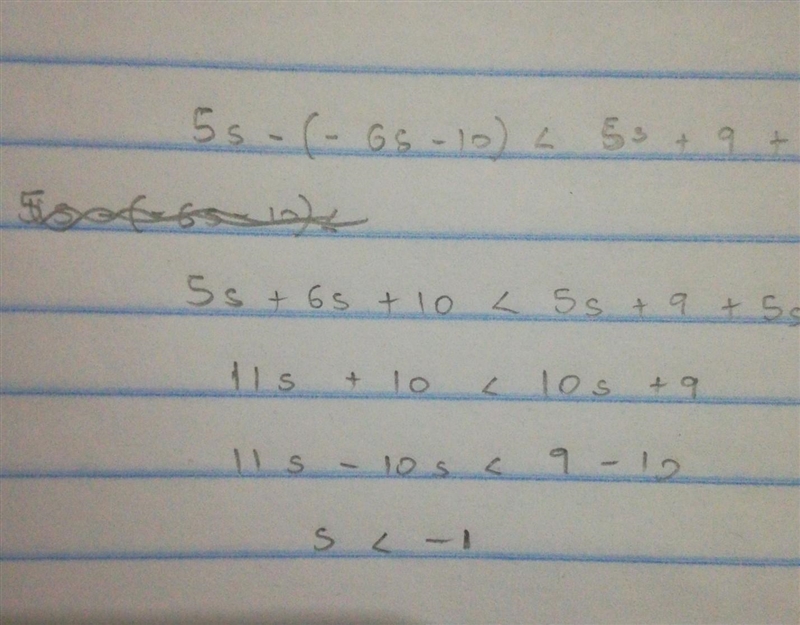 5s - (- 6s - 10) < 5s + 9 +
5s - (- 6s - 10) <
5s + 6s + 10 < 5s + 9 + 5s
11s + 10 < 10s + 9
11s - 10s < 9 - 10
s < -1